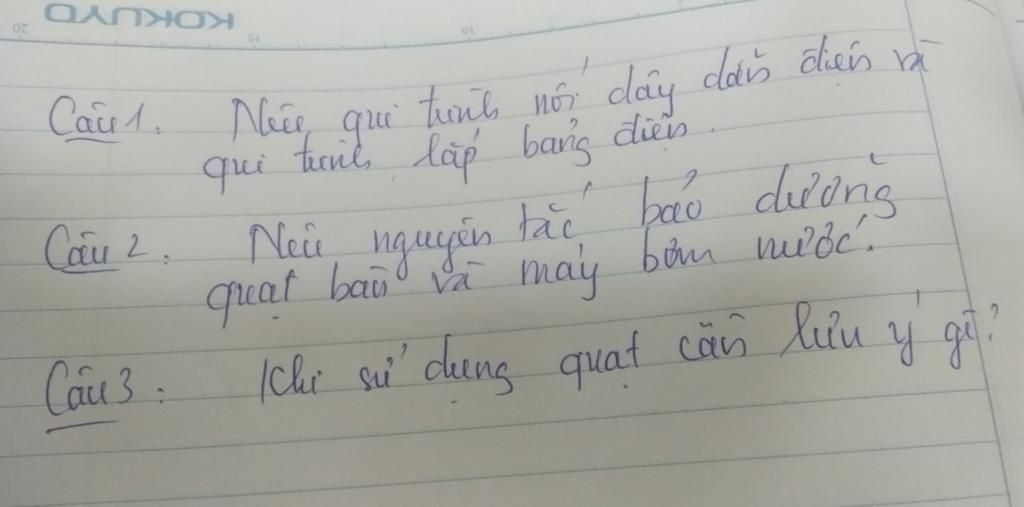 KOKUYO
20 15 10
Câu 1. Nêu qui trình nối dây dẫn điện và
qui trình lắp bảng điện.
Câu 2. Nêu nguyên tắc bảo dưỡng
quạt bàn và máy bơm nước.
Câu 3: Khi sử dụng quạt cần lưu ý gì?